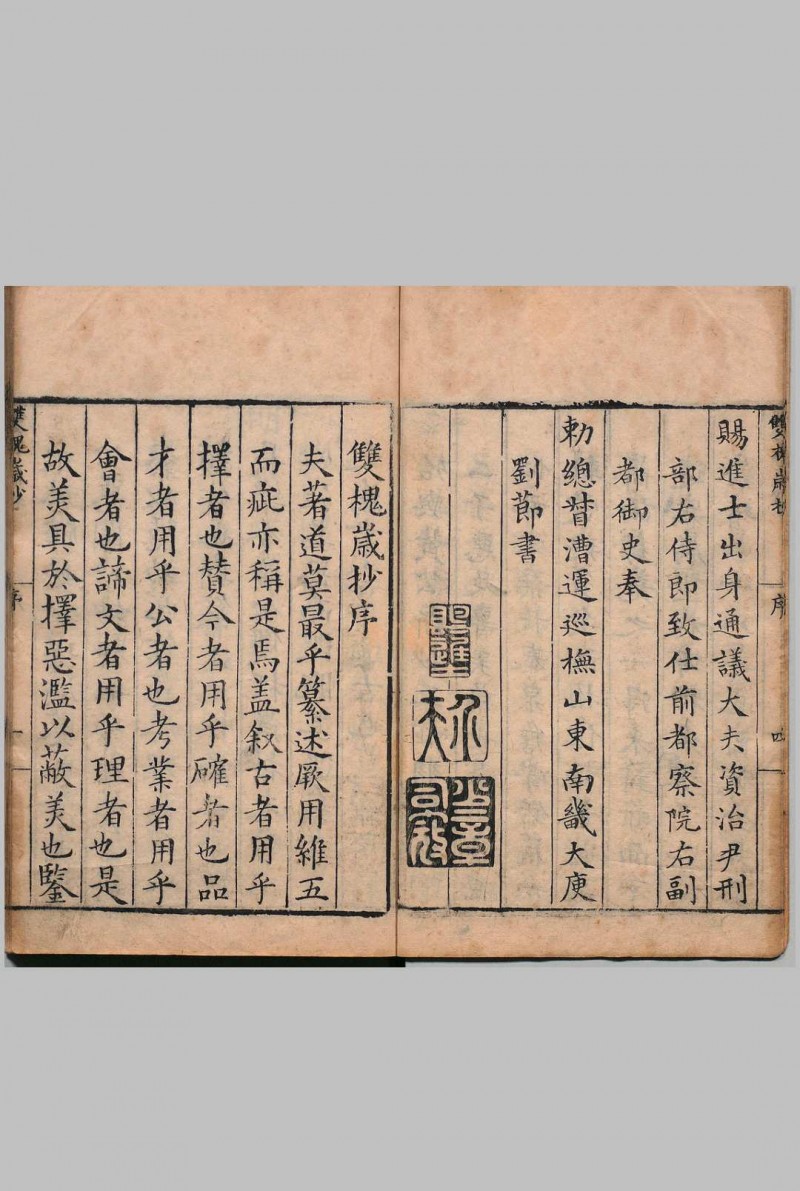 雙槐歲抄
序
四
賜進士出身通議大夫資治尹刑
部右侍郎致仕前都察院右副
都御史奉
勅總督漕運巡撫山東南畿大庾
劉節書
雙槐歲抄序
夫著道莫最乎纂述厥用維五
而疵亦稱是焉盖叙古者用乎
擇者也賛今者用乎確者也品
才者用乎公者也考業者用乎
會者也諦文者用乎理者也是
故美具於擇惡濫以蔽美也鑒
雙槐歲抄
序
一